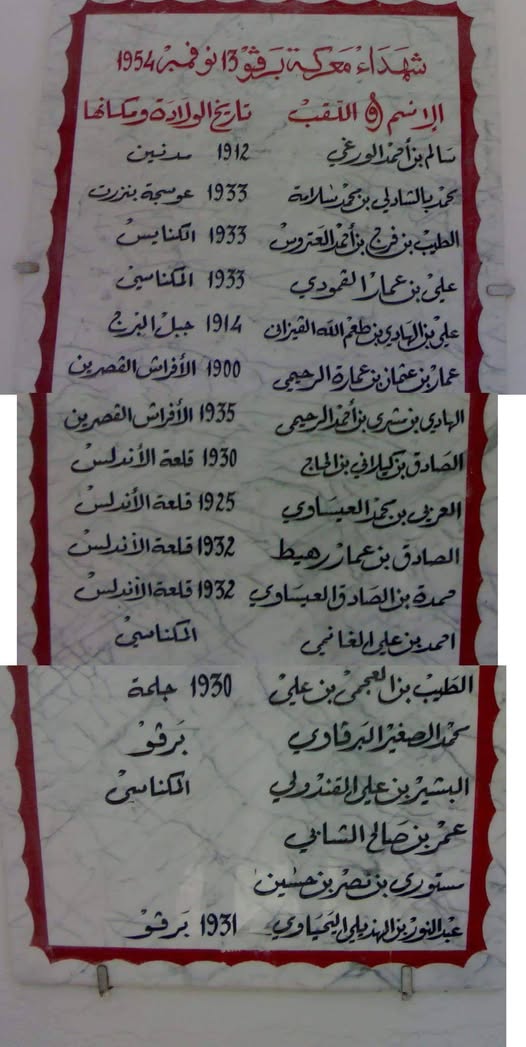 شهداء معركة برڨو 13 نوفمبر 1954
الإسم و اللقب تاريخ الولادة ومكانها
سالم بن أحمد الورغي 1912 مدنين
محمد بالشاذلي بن محمد سلامة 1933 عوسجة بنزرت
الطيب بن فرج بن أحمد العتروس 1933 المكناسي
علي بن عمار القمودي 1933 المكناسي
علي بن الهادي بن طعم الله الڨيزاني 1914 جبل البرج
عمار بن عثمان بن عمارة الرحيمي 1900 الأفراش القصرين
الهادي بن بشرى بن أحمد الرحيمي 1935 الأفراش القصرين
الصادق بن كيلاني بن الحاج 1930 قلعة الأندلس
العربي بن محمد العيساوي 1925 قلعة الأندلس
الصادق بن عمار رهيط 1932 قلعة الأندلس
حمدة بن الصادق العيساوي 1932 قلعة الأندلس
احمد بن علي الغانمي المكناسي
الطيب بن العجمي بن علي 1930 جلمة
محمد الصغير البرڨاوي برڨو
البشير بن علي القندولي المكناسي
عمر بن صالح الشابي
مستوري بن نصر بن حسين
عبد النور بن الهذيلي اليحياوي 1931 برڨو